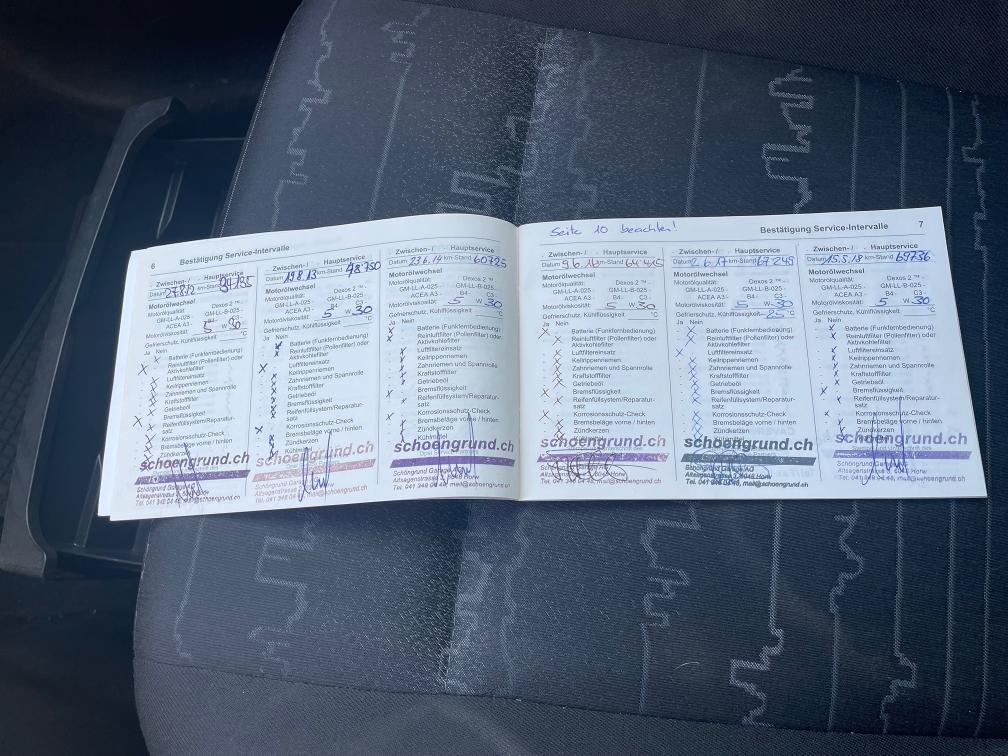 6
Bestätigung Service-Intervalle
Zwischen- / Hauptservice
Datum km-Stand
Motorölwechsel
Motorölqualität: Dexos 2 ™ -
GM-LL-A-025 - GM-LL-B-025 -
ACEA A3 - B4 - C3 -
Motorölviskosität: 5 W 30
Gefrierschutz, Kühlflüssigkeit °C
Ja Nein
Batterie (Funkfernbedienung)
Reinluftfilter (Pollenfilter) oder
Aktivkohlefilter
Luftfiltereinsatz
Keilrippenriemen
Zahnriemen und Spannrolle
Kraftstofffilter
Getriebeöl
Bremsflüssigkeit
Reifenfüllsystem/Reparatur-
satz
Korrosionsschutz-Check
Bremsbeläge vorne / hinten
Zündkerzen
schoengrund.ch
Tel. 041 348 04 48, mail@schoengrund.ch
Zwischen- / Hauptservice
Datum 19.8.13 km-Stand 48.750
Motorölwechsel
Motorölqualität: Dexos 2 ™ -
GM-LL-A-025 - GM-LL-B-025 -
ACEA A3 - B4 - C3 -
Motorölviskosität: 5 W 30
Gefrierschutz, Kühlflüssigkeit °C
Ja Nein
Batterie (Funkfernbedienung)
Reinluftfilter (Pollenfilter) oder
Aktivkohlefilter
Luftfiltereinsatz
Keilrippenriemen
Zahnriemen und Spannrolle
Kraftstofffilter
Getriebeöl
Bremsflüssigkeit
Reifenfüllsystem/Reparatur-
satz
Korrosionsschutz-Check
Bremsbeläge vorne / hinten
Zündkerzen
Kühlmittel
schoengrund.ch
Tel. 041 348 04 48, mail@schoengrund.ch
Zwischen- / Hauptservice
Datum 23.6.14 km-Stand 60725
Motorölwechsel
Motorölqualität: Dexos 2 ™ -
GM-LL-A-025 - GM-LL-B-025 -
ACEA A3 - B4 - C3 -
Motorölviskosität: 5 W 30
Gefrierschutz, Kühlflüssigkeit °C
Ja Nein
Batterie (Funkfernbedienung)
Reinluftfilter (Pollenfilter) oder
Aktivkohlefilter
Luftfiltereinsatz
Keilrippenriemen
Zahnriemen und Spannrolle
Kraftstofffilter
Getriebeöl
Bremsflüssigkeit
Reifenfüllsystem/Reparatur-
satz
Korrosionsschutz-Check
Bremsbeläge vorne / hinten
Zündkerzen
Kühlmittel
schoengrund.ch
Tel. 041 348 04 48, mail@schoengrund.ch
Seite 10 beachten!
Bestätigung Service-Intervalle
7
Zwischen- / Hauptservice
Datum km-Stand 64445
Motorölwechsel
Motorölqualität: Dexos 2 ™ -
GM-LL-A-025 - GM-LL-B-025 -
ACEA A3 - B4 - C3 -
Motorölviskosität: 5 W 30
Gefrierschutz, Kühlflüssigkeit °C
Ja Nein
Batterie (Funkfernbedienung)
Reinluftfilter (Pollenfilter) oder
Aktivkohlefilter
Luftfiltereinsatz
Keilrippenriemen
Zahnriemen und Spannrolle
Kraftstofffilter
Getriebeöl
Bremsflüssigkeit
Reifenfüllsystem/Reparatur-
satz
Korrosionsschutz-Check
Bremsbeläge vorne / hinten
Zündkerzen
schoengrund.ch
Tel. 041 348 04 48, mail@schoengrund.ch
Zwischen- / Hauptservice
Datum 2.6.17 km-Stand 67249
Motorölwechsel
Motorölqualität: Dexos 2 ™ -
GM-LL-A-025 - GM-LL-B-025 -
ACEA A3 - B4 - C3 -
Motorölviskosität: 5 W 30
Gefrierschutz, Kühlflüssigkeit -25 °C
Ja Nein
Batterie (Funkfernbedienung)
Reinluftfilter (Pollenfilter) oder
Aktivkohlefilter
Luftfiltereinsatz
Keilrippenriemen
Zahnriemen und Spannrolle
Kraftstofffilter
Getriebeöl
Bremsflüssigkeit
Reifenfüllsystem/Reparatur-
satz
Korrosionsschutz-Check
Bremsbeläge vorne / hinten
Zündkerzen
schoengrund.ch
Tel. 041 348 04 48, mail@schoengrund.ch
Zwischen- / Hauptservice
Datum 15.5.18 km-Stand 69736
Motorölwechsel
Motorölqualität: Dexos 2 ™ -
GM-LL-A-025 - GM-LL-B-025 -
ACEA A3 - B4 - C3 -
Motorölviskosität: 5 W 30
Gefrierschutz, Kühlflüssigkeit °C
Ja Nein
Batterie (Funkfernbedienung)
Reinluftfilter (Pollenfilter) oder
Aktivkohlefilter
Luftfiltereinsatz
Keilrippenriemen
Zahnriemen und Spannrolle
Kraftstofffilter
Getriebeöl
Bremsflüssigkeit
Reifenfüllsystem/Reparatur-
satz
Korrosionsschutz-Check
Bremsbeläge vorne / hinten
Zündkerzen
schoengrund.ch
Tel. 041 348 04 48, mail@schoengrund.ch